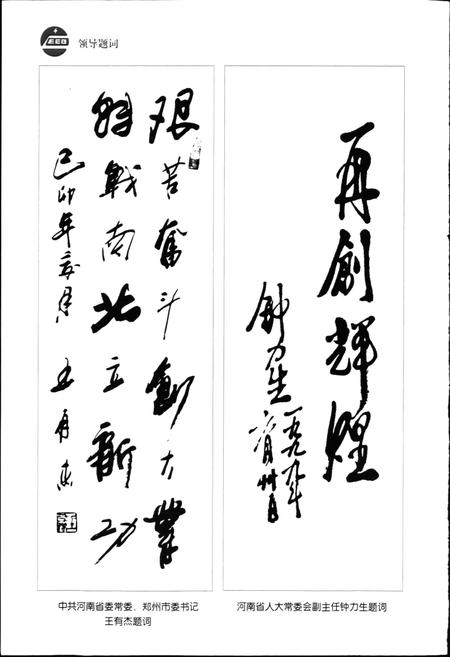 领导题词
再創輝煌
钟力生
一九九九年
艰苦奮斗創大業
转戰南北立新功
己卯年
王有杰
中共河南省委常委、郑州市委书记
王有杰题词
河南省人大常委会副主任钟力生题词